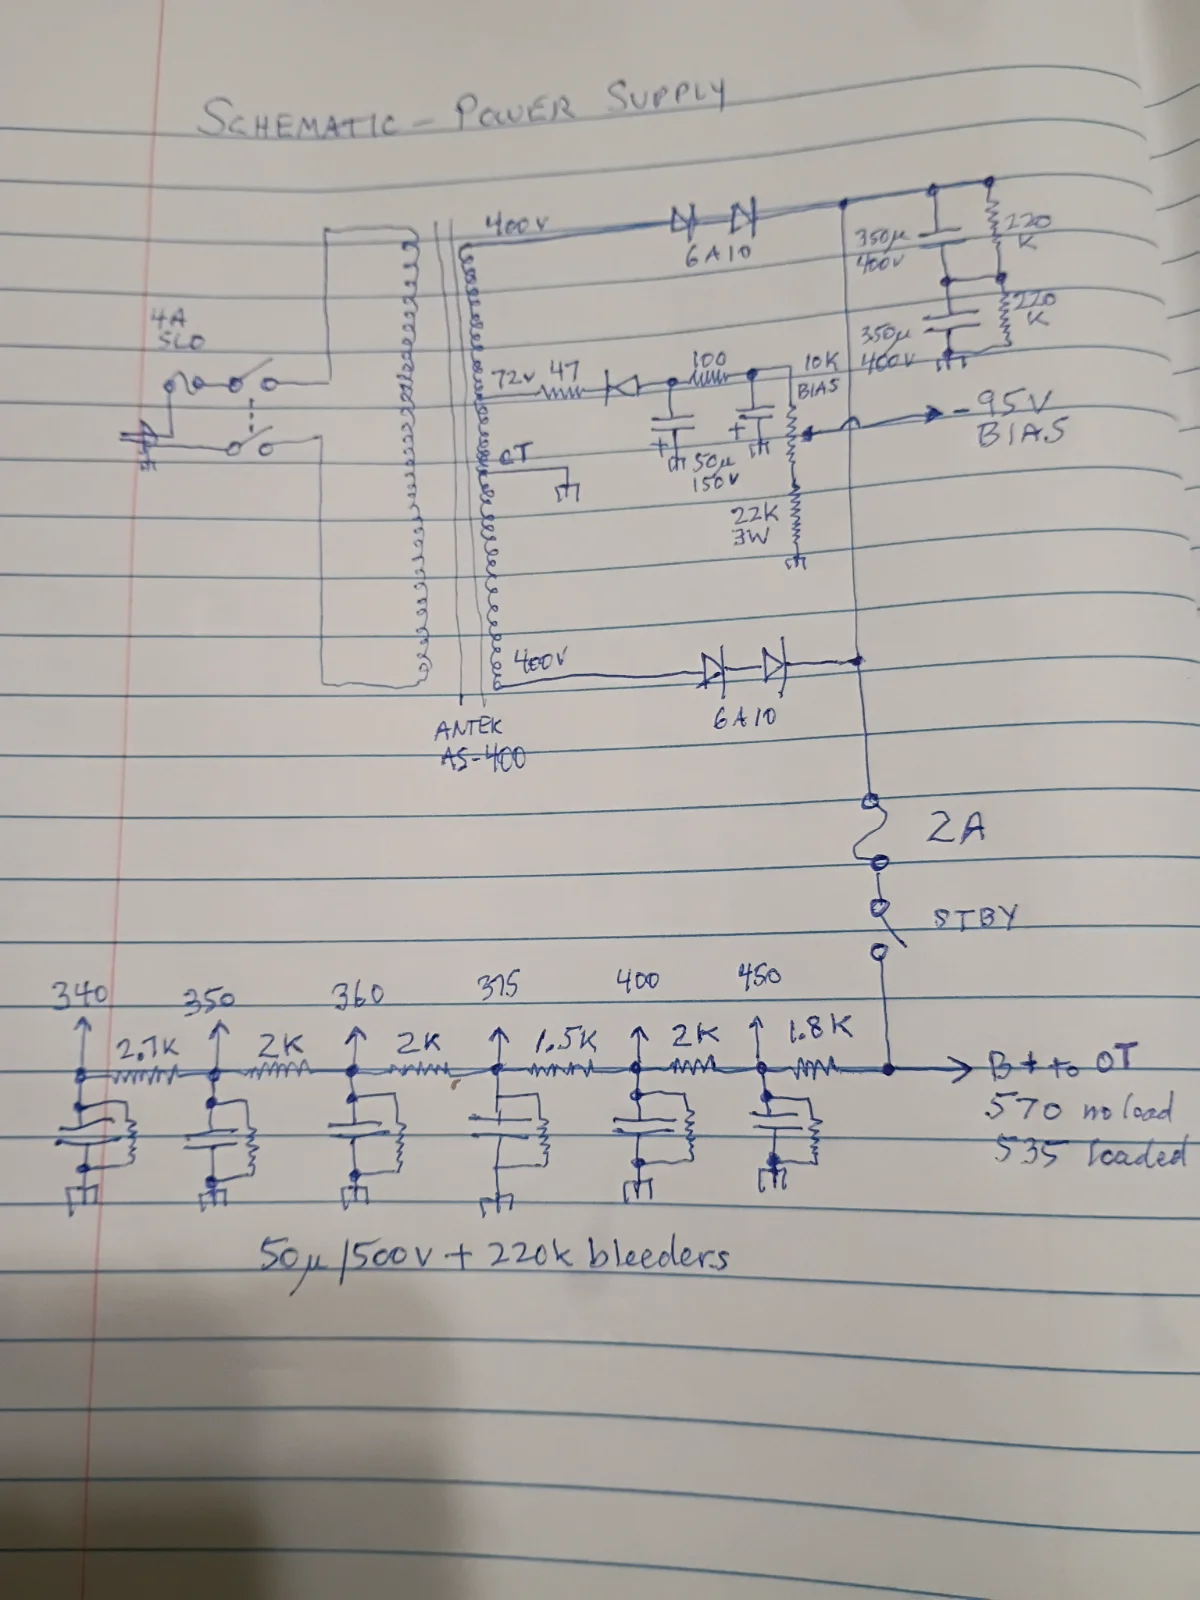 SCHEMATIC - POWER SUPPLY
400V
6A10
350µ
400V
220
K
220
K
350µ
400V
4A
SLO
72V
47
100
10K
BIAS
-95V
BIAS
+
+
50µ
150V
CT
22K
3W
400V
6A10
ANTEK
AS-400
2A
STBY
340
350
360
375
400
450
2.7K
2K
2K
1.5K
2K
1.8K
B+ to OT
570 no load
535 loaded
50µ/500V + 220K bleeders